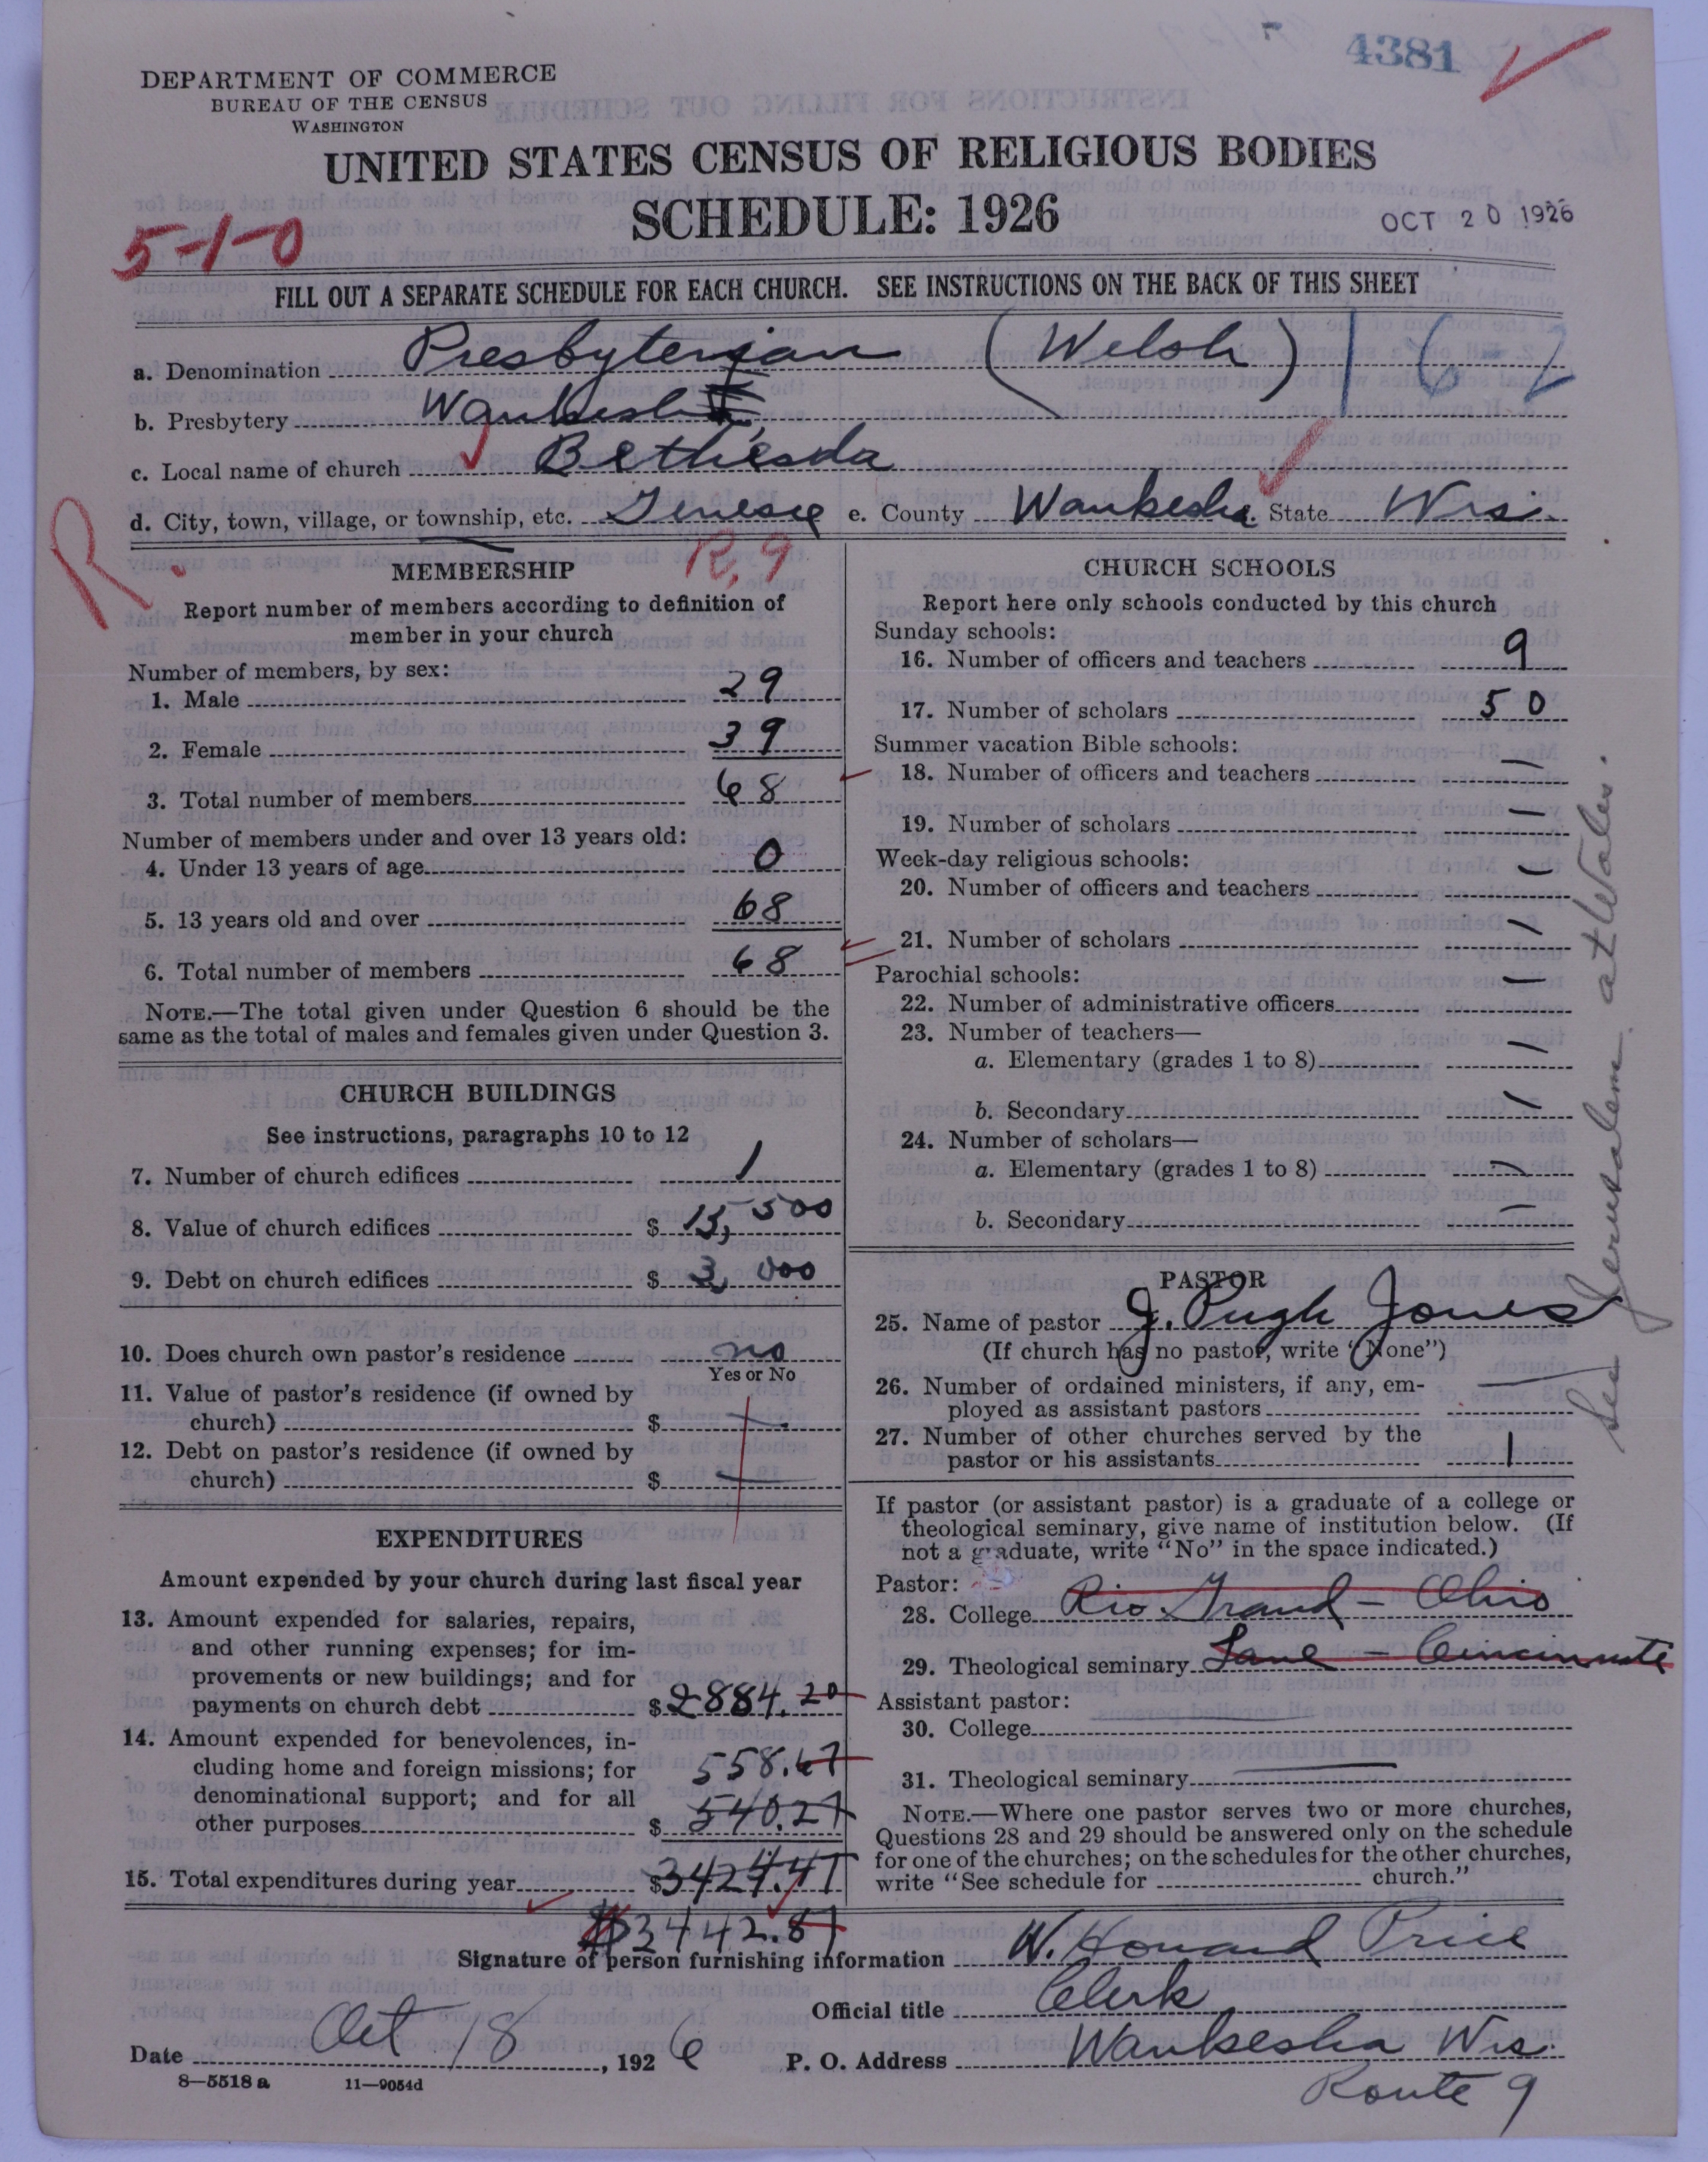 4381
DEPARTMENT OF COMMERCE
BUREAU OF THE CENSUS
WASHINGTON
UNITED STATES CENSUS OF RELIGIOUS BODIES
SCHEDULE: 1926
OCT 20 1926
5-1-0
FILL OUT A SEPARATE SCHEDULE FOR EACH CHURCH. SEE INSTRUCTIONS ON THE BACK OF THIS SHEET
a. Denomination Presbyterian (Welsh) 162
b. Presbytery Waukesha
c. Local name of church Bethesda
d. City, town, village, or township, etc. Genesee e. County Waukesha State Wis.
R.
R, 9
MEMBERSHIP
Report number of members according to definition of
member in your church
Number of members, by sex:
1. Male 29
2. Female 39
3. Total number of members 68
Number of members under and over 13 years old:
4. Under 13 years of age 0
5. 13 years old and over 68
6. Total number of members 68
NOTE.—The total given under Question 6 should be the
same as the total of males and females given under Question 3.
CHURCH BUILDINGS
See instructions, paragraphs 10 to 12
7. Number of church edifices 1
8. Value of church edifices $ 15,500
9. Debt on church edifices $ 3,000
10. Does church own pastor's residence no
Yes or No
11. Value of pastor's residence (if owned by
church) $ —
12. Debt on pastor's residence (if owned by
church) $ —
EXPENDITURES
Amount expended by your church during last fiscal year
13. Amount expended for salaries, repairs,
and other running expenses; for im-
provements or new buildings; and for
payments on church debt $ 2884.20
14. Amount expended for benevolences, in-
cluding home and foreign missions; for 558.67
denominational support; and for all
other purposes $ 540.27
15. Total expenditures during year $ 3424.47
$3442.87
CHURCH SCHOOLS
Report here only schools conducted by this church
Sunday schools:
16. Number of officers and teachers 9
17. Number of scholars 50
Summer vacation Bible schools:
18. Number of officers and teachers —
19. Number of scholars —
Week-day religious schools:
20. Number of officers and teachers —
21. Number of scholars —
Parochial schools:
22. Number of administrative officers —
23. Number of teachers—
a. Elementary (grades 1 to 8) —
b. Secondary —
24. Number of scholars—
a. Elementary (grades 1 to 8) —
b. Secondary —
PASTOR
25. Name of pastor J. Pugh Jones
(If church has no pastor, write "None")
26. Number of ordained ministers, if any, em-
ployed as assistant pastors —
27. Number of other churches served by the
pastor or his assistants 1
If pastor (or assistant pastor) is a graduate of a college or
theological seminary, give name of institution below. (If
not a graduate, write "No" in the space indicated.)
Pastor:
28. College Rio Grand - Ohio
29. Theological seminary Lane - Cincinnate
Assistant pastor:
30. College
31. Theological seminary —
NOTE.—Where one pastor serves two or more churches,
Questions 28 and 29 should be answered only on the schedule
for one of the churches; on the schedules for the other churches,
write "See schedule for church."
See Jerusalem at Wales.
Signature of person furnishing information W. Howard Price
Official title Clerk
Date Oct 18, 1926 P. O. Address Waukesha Wis.
Route 9
8—5518 a 11—9054d